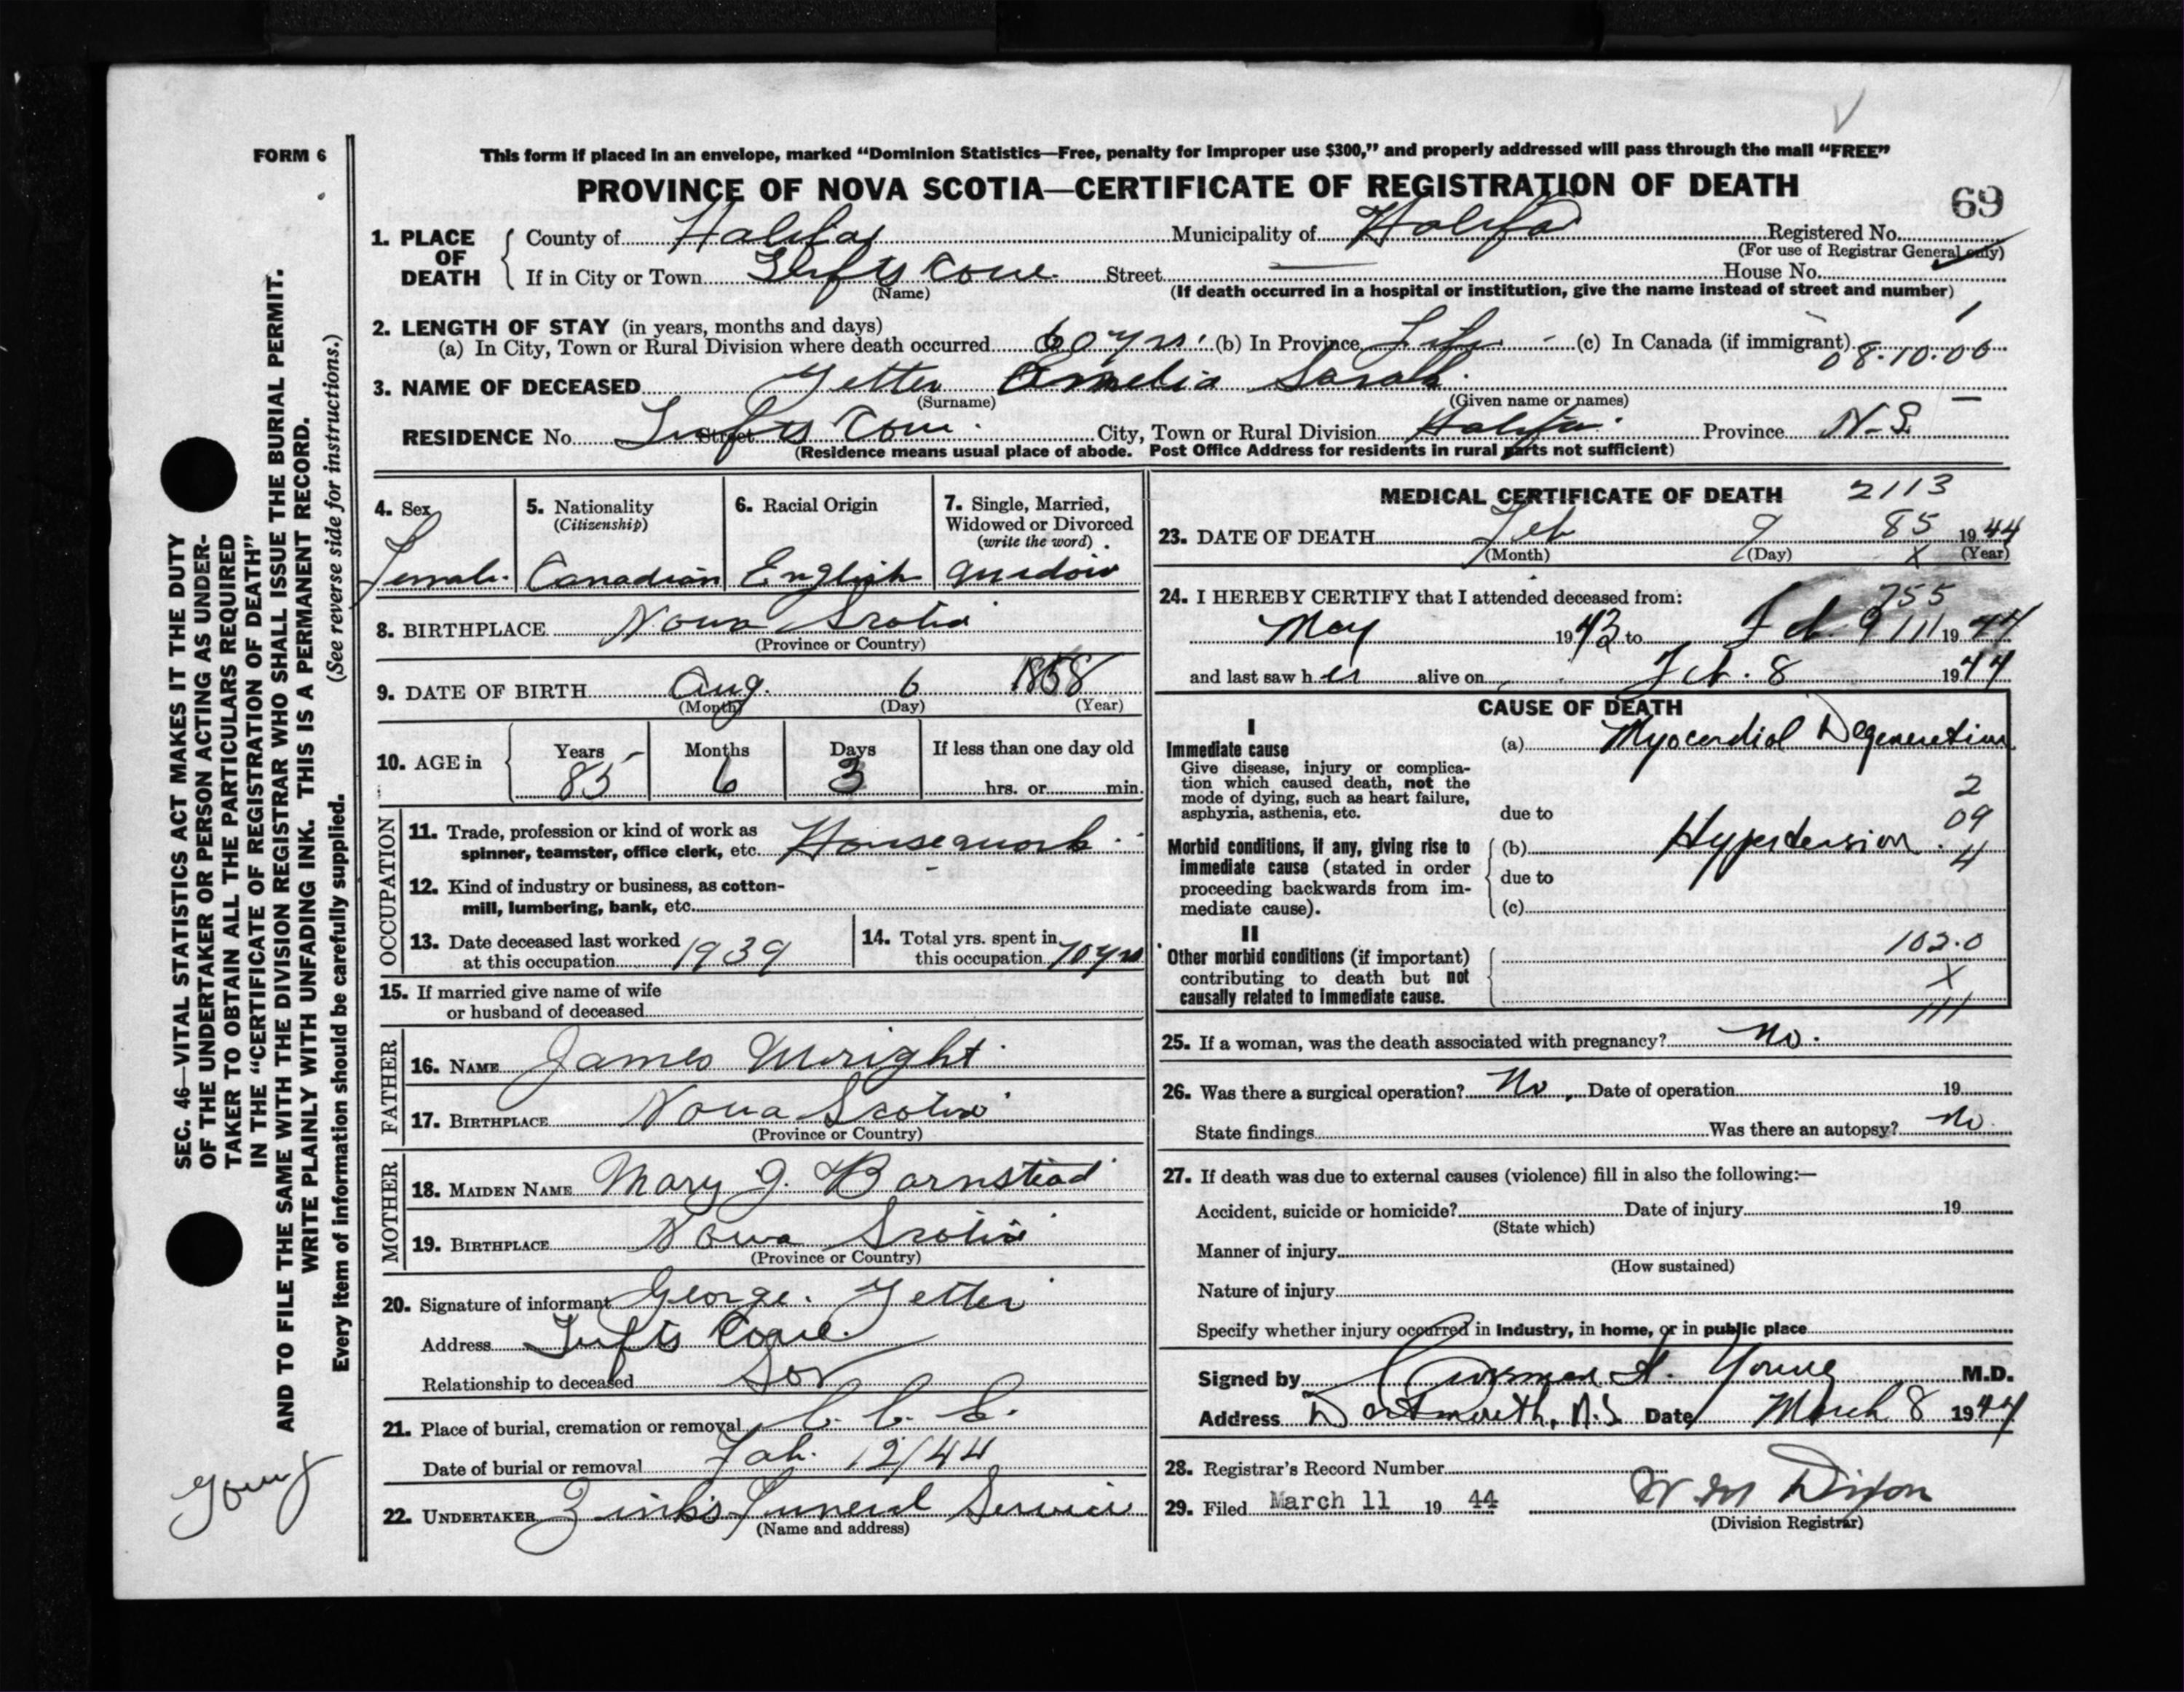 FORM 6
This form if placed in an envelope, marked “Dominion Statistics—Free, penalty for improper use $300,” and properly addressed will pass through the mail “FREE”
PROVINCE OF NOVA SCOTIA—CERTIFICATE OF REGISTRATION OF DEATH
69
1. PLACE OF DEATH County of Halifax Municipality of Halifax Registered No.
(For use of Registrar General only)
If in City or Town Tufts Cove Street House No.
(Name) (If death occurred in a hospital or institution, give the name instead of street and number)
2. LENGTH OF STAY (in years, months and days)
(a) In City, Town or Rural Division where death occurred 60 yrs. (b) In Province Life (c) In Canada (if immigrant)
08.10.00
3. NAME OF DECEASED Yetter Emelia Sarah
(Surname) (Given name or names)
RESIDENCE No. Tufts Cove Street City, Town or Rural Division Halifax Province N.S.
(Residence means usual place of abode. Post Office Address for residents in rural parts not sufficient)
4. Sex 5. Nationality (Citizenship) 6. Racial Origin 7. Single, Married, Widowed or Divorced (write the word)
Female Canadian English Widow
8. BIRTHPLACE Nova Scotia
(Province or Country)
9. DATE OF BIRTH Aug. 6 1858
(Month) (Day) (Year)
10. AGE in Years Months Days If less than one day old
85 6 3 hrs. or min.
OCCUPATION
11. Trade, profession or kind of work as
spinner, teamster, office clerk, etc. Housework
12. Kind of industry or business, as cotton-
mill, lumbering, bank, etc.
13. Date deceased last worked at this occupation 1939 14. Total yrs. spent in this occupation 70 yrs
15. If married give name of wife
or husband of deceased
FATHER
16. NAME James Wright
17. BIRTHPLACE Nova Scotia
(Province or Country)
MOTHER
18. MAIDEN NAME Mary J. Barnstead
19. BIRTHPLACE Nova Scotia
(Province or Country)
20. Signature of informant George Yetter
Address Tufts Cove
Relationship to deceased Son
21. Place of burial, cremation or removal C. C. C.
Date of burial or removal Feb. 12/44
22. UNDERTAKER Zink's Funeral Service
(Name and address)
MEDICAL CERTIFICATE OF DEATH 2113
23. DATE OF DEATH Feb 9 85 1944
(Month) (Day) X (Year)
24. I HEREBY CERTIFY that I attended deceased from: 755
May 1943 to Feb. 9 111 1944
and last saw her alive on Feb. 8 1944
CAUSE OF DEATH
I
Immediate cause (a) Myocardial Degeneration
Give disease, injury or complica-
tion which caused death, not the
mode of dying, such as heart failure,
asphyxia, asthenia, etc. due to
2
09
4
Morbid conditions, if any, giving rise to (b) Hypertension
immediate cause (stated in order due to
proceeding backwards from im-
mediate cause). (c)
II
Other morbid conditions (if important)
contributing to death but not
causally related to immediate cause.
102.0
X
111
25. If a woman, was the death associated with pregnancy? No.
26. Was there a surgical operation? No. Date of operation 19
State findings Was there an autopsy? No
27. If death was due to external causes (violence) fill in also the following:—
Accident, suicide or homicide? Date of injury 19
(State which)
Manner of injury
(How sustained)
Nature of injury
Specify whether injury occurred in industry, in home, or in public place
Signed by H. Young M.D.
Address Dartmouth, N.S. Date March 8 1944
28. Registrar's Record Number
29. Filed March 11 19 44 W M Dixon
(Division Registrar)
SEC. 46—VITAL STATISTICS ACT MAKES IT THE DUTY
OF THE UNDERTAKER OR PERSON ACTING AS UNDER-
TAKER TO OBTAIN ALL THE PARTICULARS REQUIRED
IN THE “CERTIFICATE OF REGISTRATION OF DEATH”
AND TO FILE THE SAME WITH THE DIVISION REGISTRAR WHO SHALL ISSUE THE BURIAL PERMIT.
WRITE PLAINLY WITH UNFADING INK. THIS IS A PERMANENT RECORD.
Every item of information should be carefully supplied. (See reverse side for instructions.)
Young